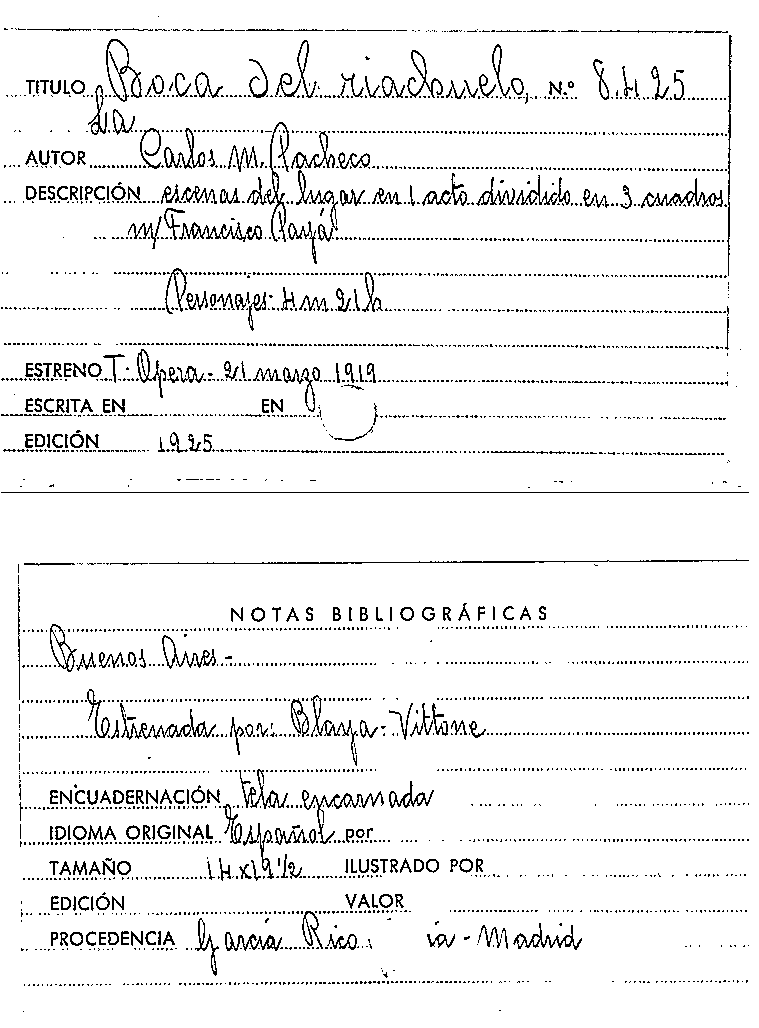 TITULO Boca del riachuelo, N.º 8.425
La
AUTOR Carlos M. Pacheco
DESCRIPCIÓN escenas del lugar en 1 acto dividido en 3 cuadros
m/ Francisco Payá
Personajes- 4 m 21 h
ESTRENO T. Opera- 21 marzo 1919
ESCRITA EN EN
EDICIÓN 1925
NOTAS BIBLIOGRÁFICAS
Buenos Aires-
Estrenada por: Blaya-Vittone
ENCUADERNACIÓN tela encarnada
IDIOMA ORIGINAL Español por
TAMAÑO 14x19½ ILUSTRADO POR
EDICIÓN VALOR
PROCEDENCIA García Rico. ia-Madrid